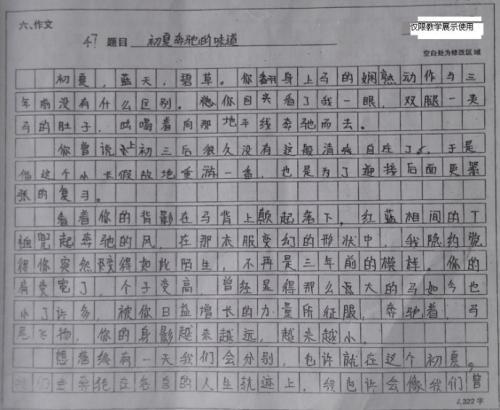 六、作文
仅限教学展示使用
47 题目 初夏奔驰的味道
空白处为修改区域
初夏,蓝天,碧草。你翻身上马的娴熟动作与三
年前没有什么区别。你回头看了我一眼,双腿一夹
马的肚子,吆喝着向那地平线奔驰而去。
你曾说上初三后很久没有这般清爽自在了,于是
借这个小长假故地重游一番,也是为了迎接后面更紧
张的复习。
看着你的背影在马背上颠起落下,红蓝相间的T
恤兜起奔驰的风,在那衣服变幻的形状中,我隐约觉
得你突然变得如此陌生,不再是三年前的模样。你的
肩变宽了,个子变高,曾经是得那么高大的马如今也
小了许多,被你日益增长的力量所征服。奔驰着,马
尾飞扬,你的身影越来越远,越来越小。
想着终有一天我们会分别,也许就在这个初夏,
奔驰在各自的人生轨迹上,我也许会像我们曾
322字